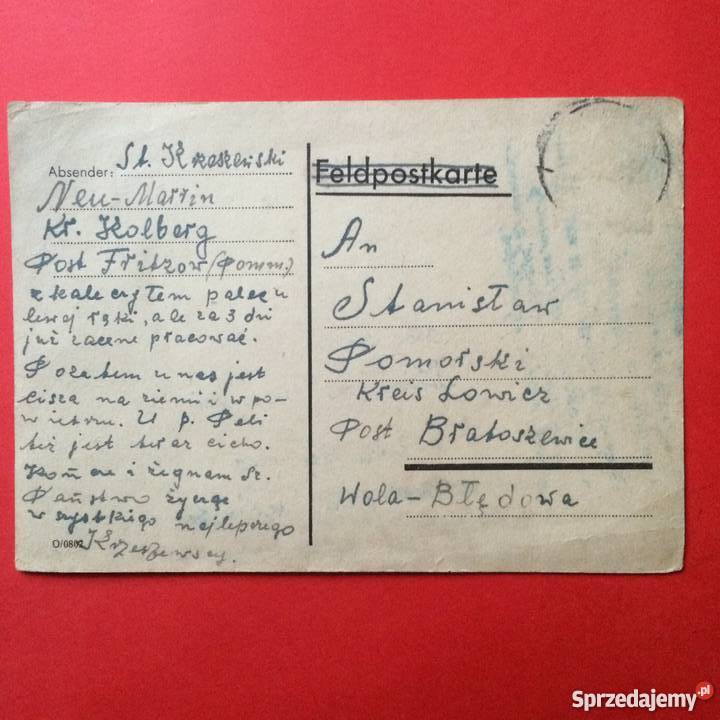 Absender: St. Krzeszewski
Neu-Marrin
Kr. Kolberg
Post Fritzow (Pomm.)
zkaleczyłem palec u
lewej ręki, ale za 3 dni
już zacznę pracować.
Pozatem u nas jest
cisza na ziemi i w po-
wietrzu. U p. Peli
też jest teraz cicho.
Kończę i żegnam Sz.
Państwo życzę
wszystkiego najlepszego
Krzeszewscy.
O/0802
Feldpostkarte
An
Stanisław
Pomorski
Kreis Lowicz
Post Bratoszewice
Wola-Błędowa
Sprzedajemy.pl